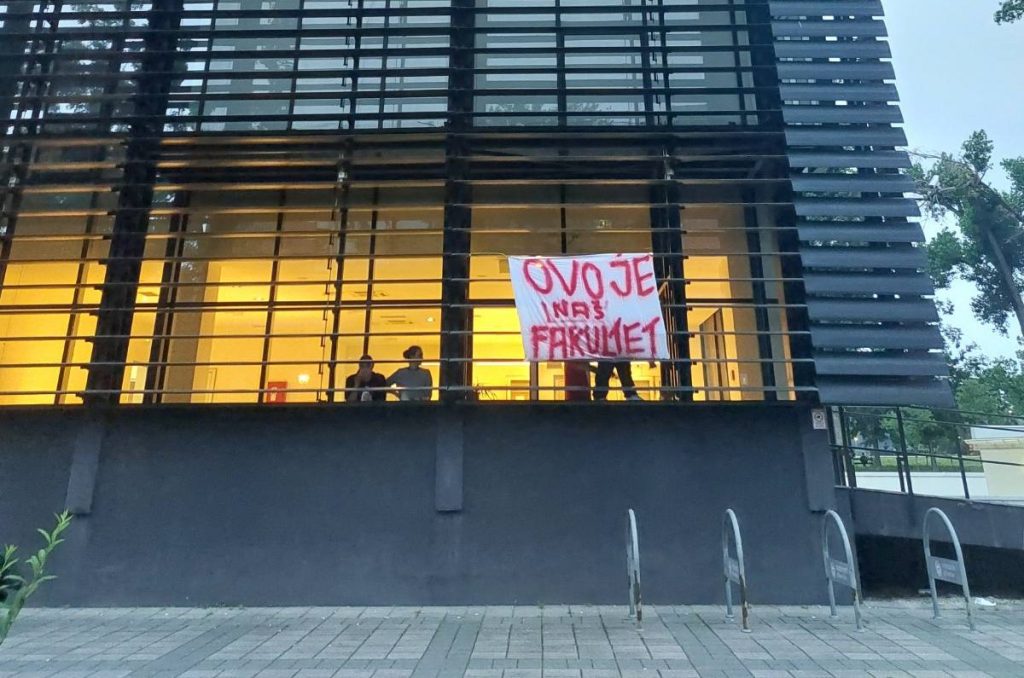 OVO JE
I NAŠ
FAKULTET